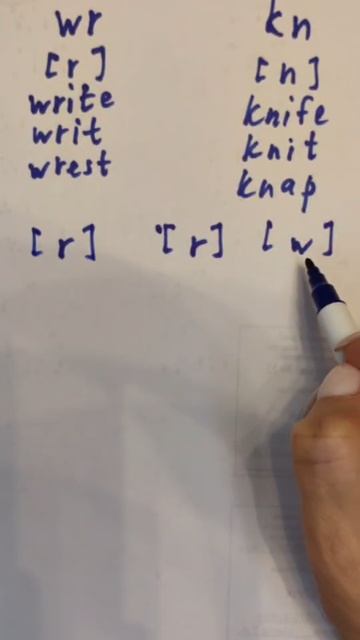 wr kn
[r] [n]
write knife
writ knit
wrest knap
[r] [r] [w]